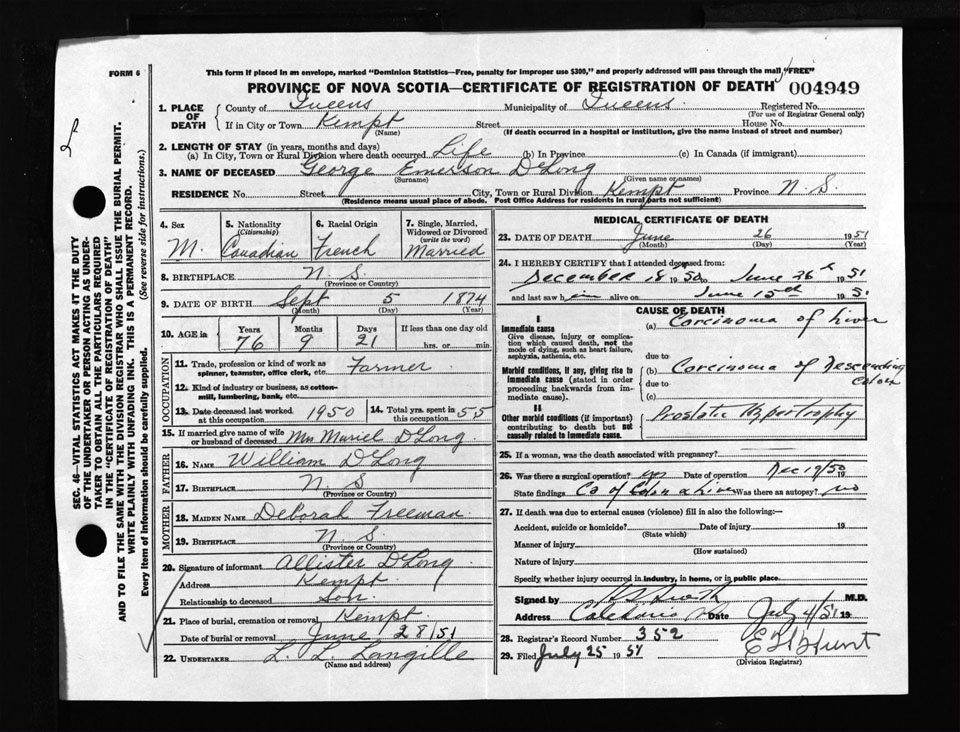 FORM 6
This form if placed in an envelope, marked "Dominion Statistics—Free, penalty for improper use $300," and properly addressed will pass through the mail "FREE"
PROVINCE OF NOVA SCOTIA—CERTIFICATE OF REGISTRATION OF DEATH 004949
1. PLACE OF DEATH County of Queens Municipality of Queens Registered No.
(For use of Registrar General only)
If in City or Town Kempt Street House No.
(Name) (If death occurred in a hospital or institution, give the name instead of street and number)
2. LENGTH OF STAY (in years, months and days)
(a) In City, Town or Rural Division where death occurred Life (b) In Province (c) In Canada (if immigrant)
3. NAME OF DECEASED George Emerson DeLong
(Surname) (Given name or names)
RESIDENCE No. Street City, Town or Rural Division Kempt Province N. S.
(Residence means usual place of abode. Post Office Address for residents in rural parts not sufficient)
4. Sex M.
5. Nationality (Citizenship) Canadian
6. Racial Origin French
7. Single, Married, Widowed or Divorced (write the word) Married
8. BIRTHPLACE N S.
(Province or Country)
9. DATE OF BIRTH Sept 5 1874
(Month) (Day) (Year)
10. AGE in Years Months Days If less than one day old
76 9 21 hrs. or min.
OCCUPATION
11. Trade, profession or kind of work as spinner, teamster, office clerk, etc. Farmer
12. Kind of industry or business, as cotton-mill, lumbering, bank, etc.
13. Date deceased last worked at this occupation 1950
14. Total yrs. spent in this occupation 55
15. If married give name of wife or husband of deceased Mrs Muriel D'Long
FATHER
16. NAME William D'Long
17. BIRTHPLACE N S
MOTHER
18. MAIDEN NAME Deborah Freeman
19. BIRTHPLACE N S.
(Province or Country)
20. Signature of informant Allister D'Long
Address Kempt
Relationship to deceased Son
21. Place of burial, cremation or removal Kempt.
Date of burial or removal June 28/51
22. UNDERTAKER L. L. Langille
(Name and address)
MEDICAL CERTIFICATE OF DEATH
23. DATE OF DEATH June 26 1951
(Month) (Day) (Year)
24. I HEREBY CERTIFY that I attended deceased from:
December 18 1950 to June 26th 1951
and last saw him alive on June 15th 1951
CAUSE OF DEATH
I
Immediate cause
Give disease, injury or complication which caused death, not the mode of dying, such as heart failure, asphyxia, asthenia, etc.
(a) Carcinoma of liver
due to
Morbid conditions, if any, giving rise to immediate cause (stated in order proceeding backwards from immediate cause).
(b) Carcinoma of Descending Colon
due to
(c)
II
Other morbid conditions (if important) contributing to death but not causally related to immediate cause.
Prostatic Hypertrophy
25. If a woman, was the death associated with pregnancy?
26. Was there a surgical operation? yes Date of operation Dec 19/50 19
State findings Ca of Colon & Liver Was there an autopsy? no
27. If death was due to external causes (violence) fill in also the following:—
Accident, suicide or homicide? Date of injury 19
(State which)
Manner of injury
(How sustained)
Nature of injury
Specify whether injury occurred in industry, in home, or in public place.
Signed by M.D.
Address Caledonia Date July 4/51 19
28. Registrar's Record Number 352
29. Filed July 25 1951 Hunt
(Division Registrar)
SEC. 46—VITAL STATISTICS ACT MAKES IT THE DUTY
OF THE UNDERTAKER OR PERSON ACTING AS UNDER-
TAKER TO OBTAIN ALL THE PARTICULARS REQUIRED
IN THE "CERTIFICATE OF REGISTRATION OF DEATH"
AND TO FILE THE SAME WITH THE DIVISION REGISTRAR WHO SHALL ISSUE THE BURIAL PERMIT.
WRITE PLAINLY WITH UNFADING INK. THIS IS A PERMANENT RECORD.
Every item of information should be carefully supplied. (See reverse side for instructions.)